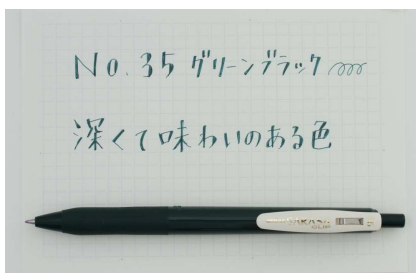 No.35 グリーンブラック
深くて味わいのある色
SARASA